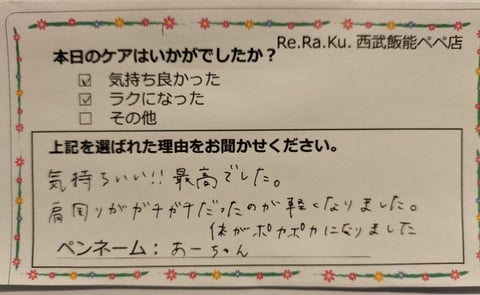 Re.Ra.Ku. 西武飯能ペペ店
本日のケアはいかがでしたか？
☑ 気持ち良かった
☑ ラクになった
☐ その他
上記を選ばれた理由をお聞かせください。
気持ちいい!! 最高でした。
肩周りがガチガチだったのが軽くなりました。
体がポカポカになりました
ペンネーム：おーちゃん